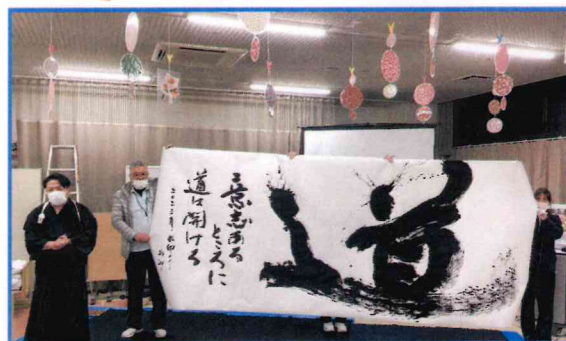 道
意志ある
ところに
道は開ける